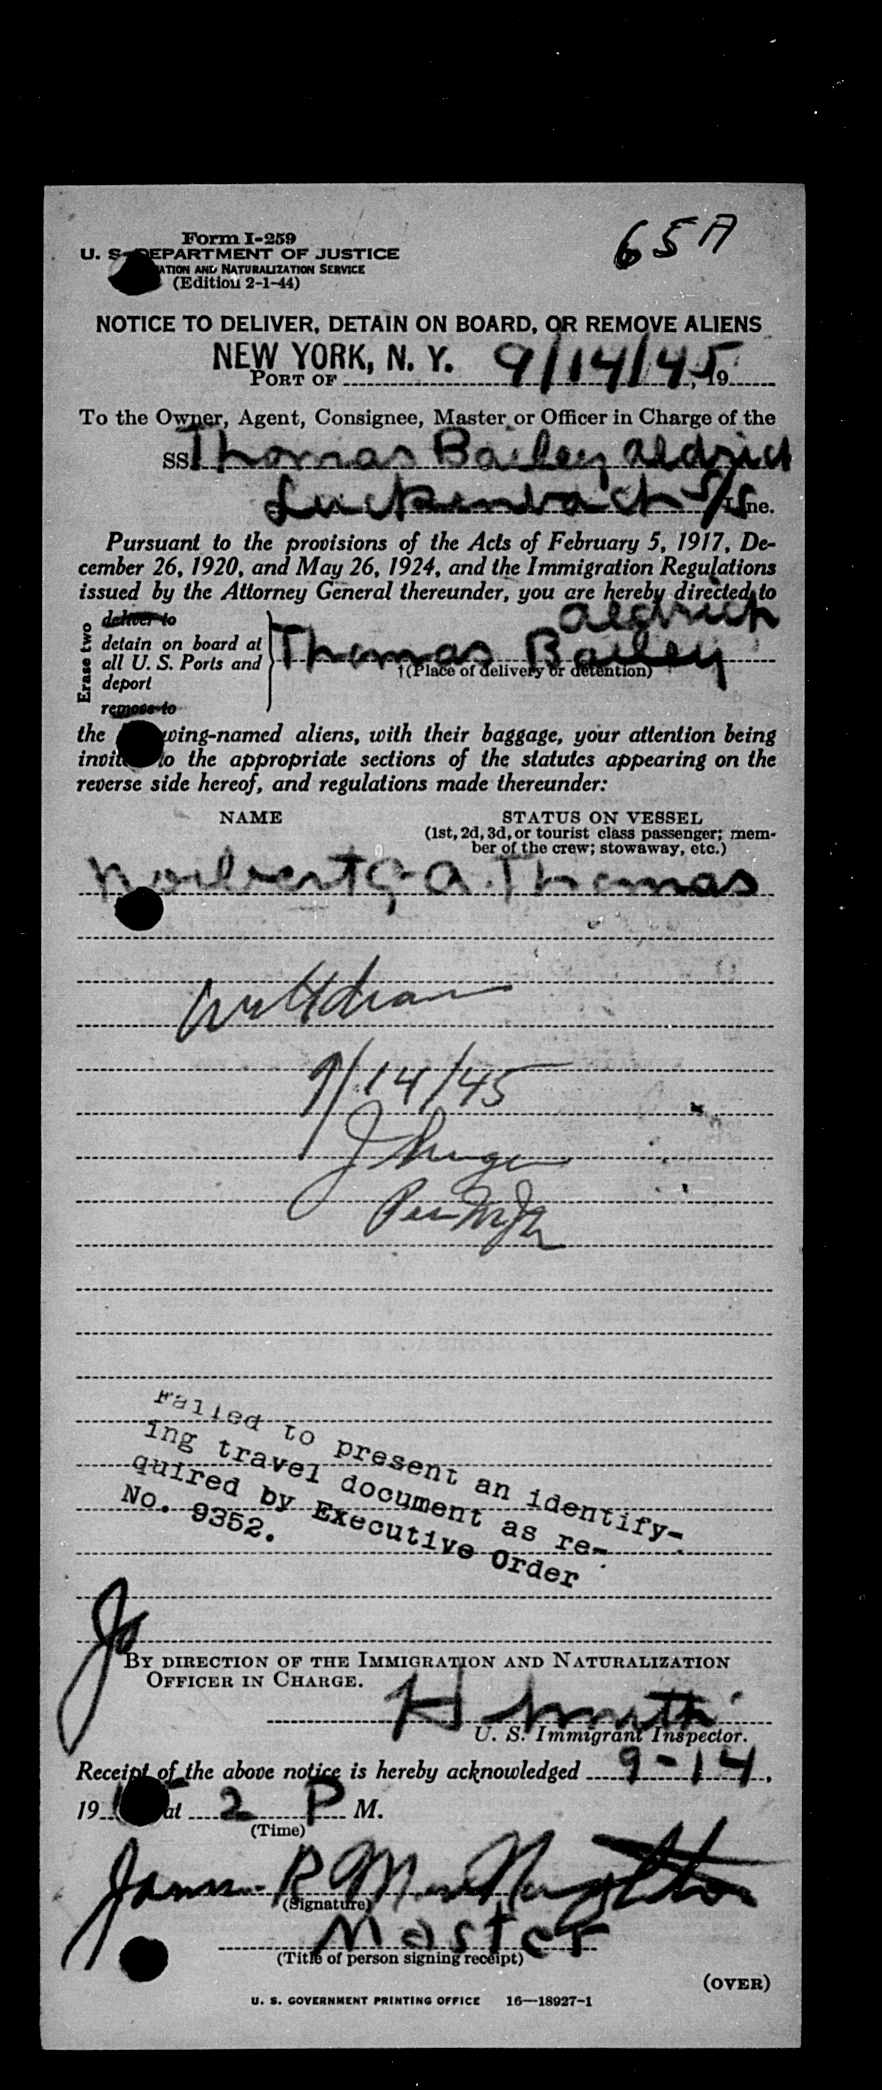 65A
Form I-259
U. S. DEPARTMENT OF JUSTICE
ATION AND NATURALIZATION SERVICE
(Edition 2-1-44)
NOTICE TO DELIVER, DETAIN ON BOARD, OR REMOVE ALIENS
NEW YORK, N. Y. 9/14/45
PORT OF , 19
To the Owner, Agent, Consignee, Master or Officer in Charge of the
SS Thomas Bailey Aldrich
Luckenbach S/S Line.
Pursuant to the provisions of the Acts of February 5, 1917, De-
cember 26, 1920, and May 26, 1924, and the Immigration Regulations
issued by the Attorney General thereunder, you are hereby directed to
Erase two
deliver to
detain on board at
all U. S. Ports and
deport
remove to
Aldrich
Thomas Bailey
†(Place of delivery or detention)
the wing-named aliens, with their baggage, your attention being
invit to the appropriate sections of the statutes appearing on the
reverse side hereof, and regulations made thereunder:
NAME STATUS ON VESSEL
(1st, 2d, 3d, or tourist class passenger; mem-
ber of the crew; stowaway, etc.)
A. Thomas
Withdrawn
9/14/45
Failed to present an identify-
ing travel document as re-
quired by Executive Order
No. 9352.
BY DIRECTION OF THE IMMIGRATION AND NATURALIZATION
OFFICER IN CHARGE.
H Smith
U. S. Immigrant Inspector.
Receipt of the above notice is hereby acknowledged 9-14,
19 at 2 P M.
(Time)
James R MacNaughton
(Signature)
Master
(Title of person signing receipt)
(OVER)
U. S. GOVERNMENT PRINTING OFFICE 16—18927-1